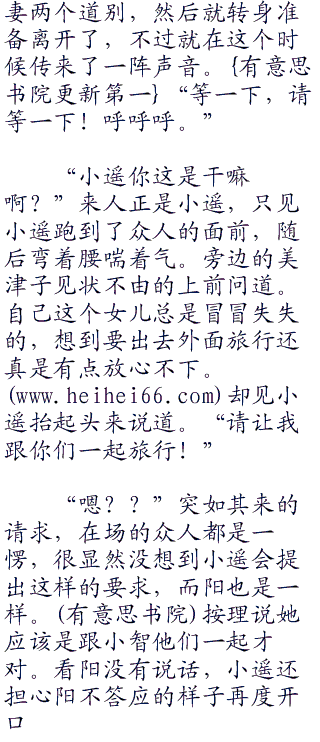 妻两个道别，然后就转身准
备离开了，不过就在这个时
候传来了一阵声音。{有意思
书院更新第一}“等一下，请
等一下！呼呼呼。”
“小遥你这是干嘛
啊？”来人正是小遥，只见
小遥跑到了众人的面前，随
后弯着腰喘着气。旁边的美
津子见状不由的上前问道。
自己这个女儿总是冒冒失失
的，想到要出去外面旅行还
真是有点放心不下。
(www.heihei66.com)却见小
遥抬起头来说道。“请让我
跟你们一起旅行！”
“嗯？？”突如其来的
请求，在场的众人都是一
愣，很显然没想到小遥会提
出这样的要求，而阳也是一
样。(有意思书院)按理说她
应该是跟小智他们一起才
对。看阳没有说话，小遥还
担心阳不答应的样子再度开
口